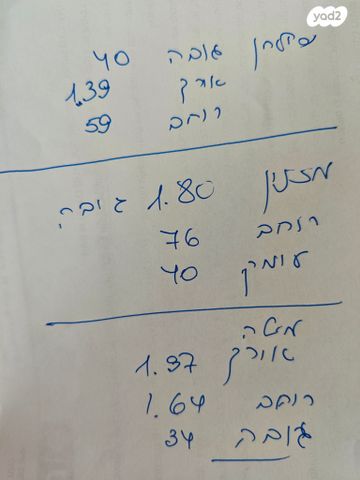 yad2
שולחן גובה 40
אורך 1.39
רוחב 59
מזנון 1.80 גובה
רוחב 76
עומק 40
מיטה
אורך 1.97
רוחב 1.64
גובה 34